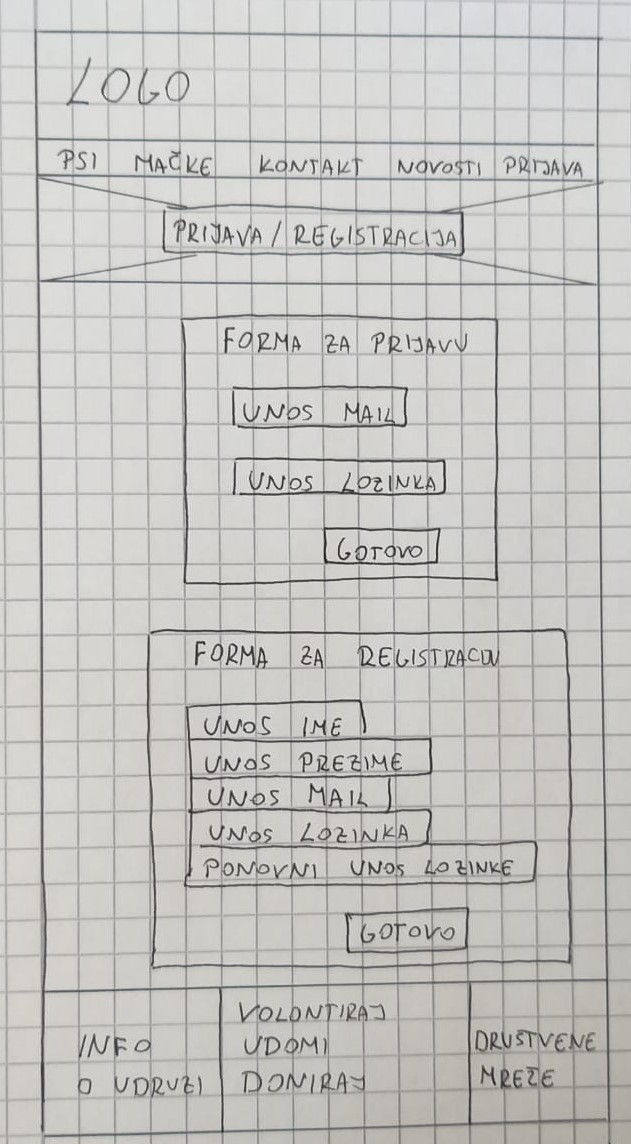 LOGO
PSI MAČKE KONTAKT NOVOSTI PRIJAVA
PRIJAVA / REGISTRACIJA
FORMA ZA PRIJAVU
UNOS MAIL
UNOS LOZINKA
GOTOVO
FORMA ZA REGISTRACIJU
UNOS IME
UNOS PREZIME
UNOS MAIL
UNOS LOZINKA
PONOVNI UNOS LOZINKE
GOTOVO
INFO
O UDRUZI
VOLONTIRAJ
UDOMI
DONIRAJ
DRUŠTVENE
MREŽE